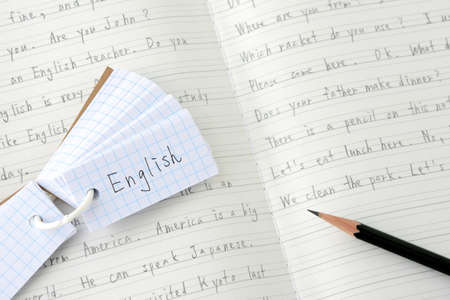 fine, and
you. Are you John?
an English teacher. Do you
English is very study
like English.
day.
English
is an
from America. America is a big
He can speak Japanese.
visited Kyoto last
Where are you from?
Which racket do you use?
Please come here. Ok. What
Does your father make dinner?
There is a pencil on this
Let's eat lunch here. No,
We clean the park. Let's